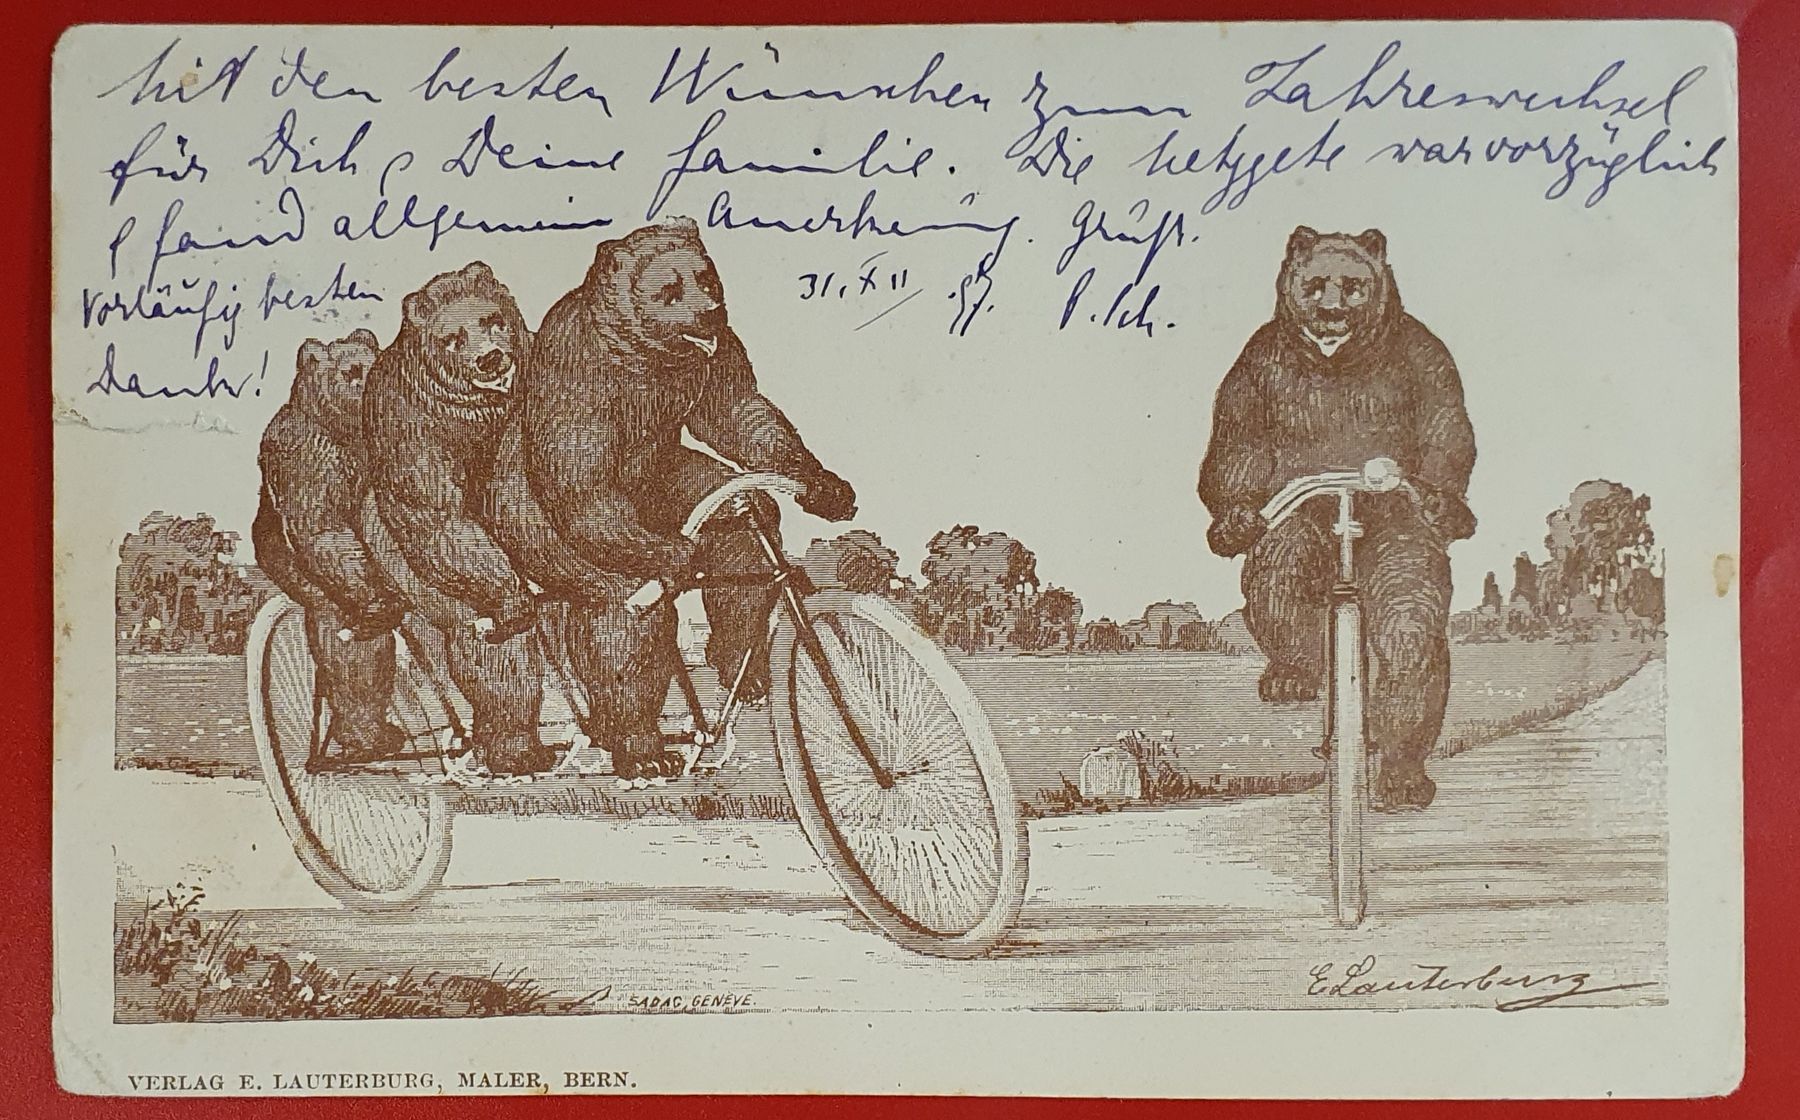 Mit den besten Wünschen zum Jahreswechsel
für Dich & Deine Familie. Die war vorzüglich
& fand allgemein Anerkennung. Gruss.
31. XII 97. P. Sch.
Vorläufig besten
Dank!
E Lauterburg
SADAG, GENÈVE.
VERLAG E. LAUTERBURG, MALER, BERN.